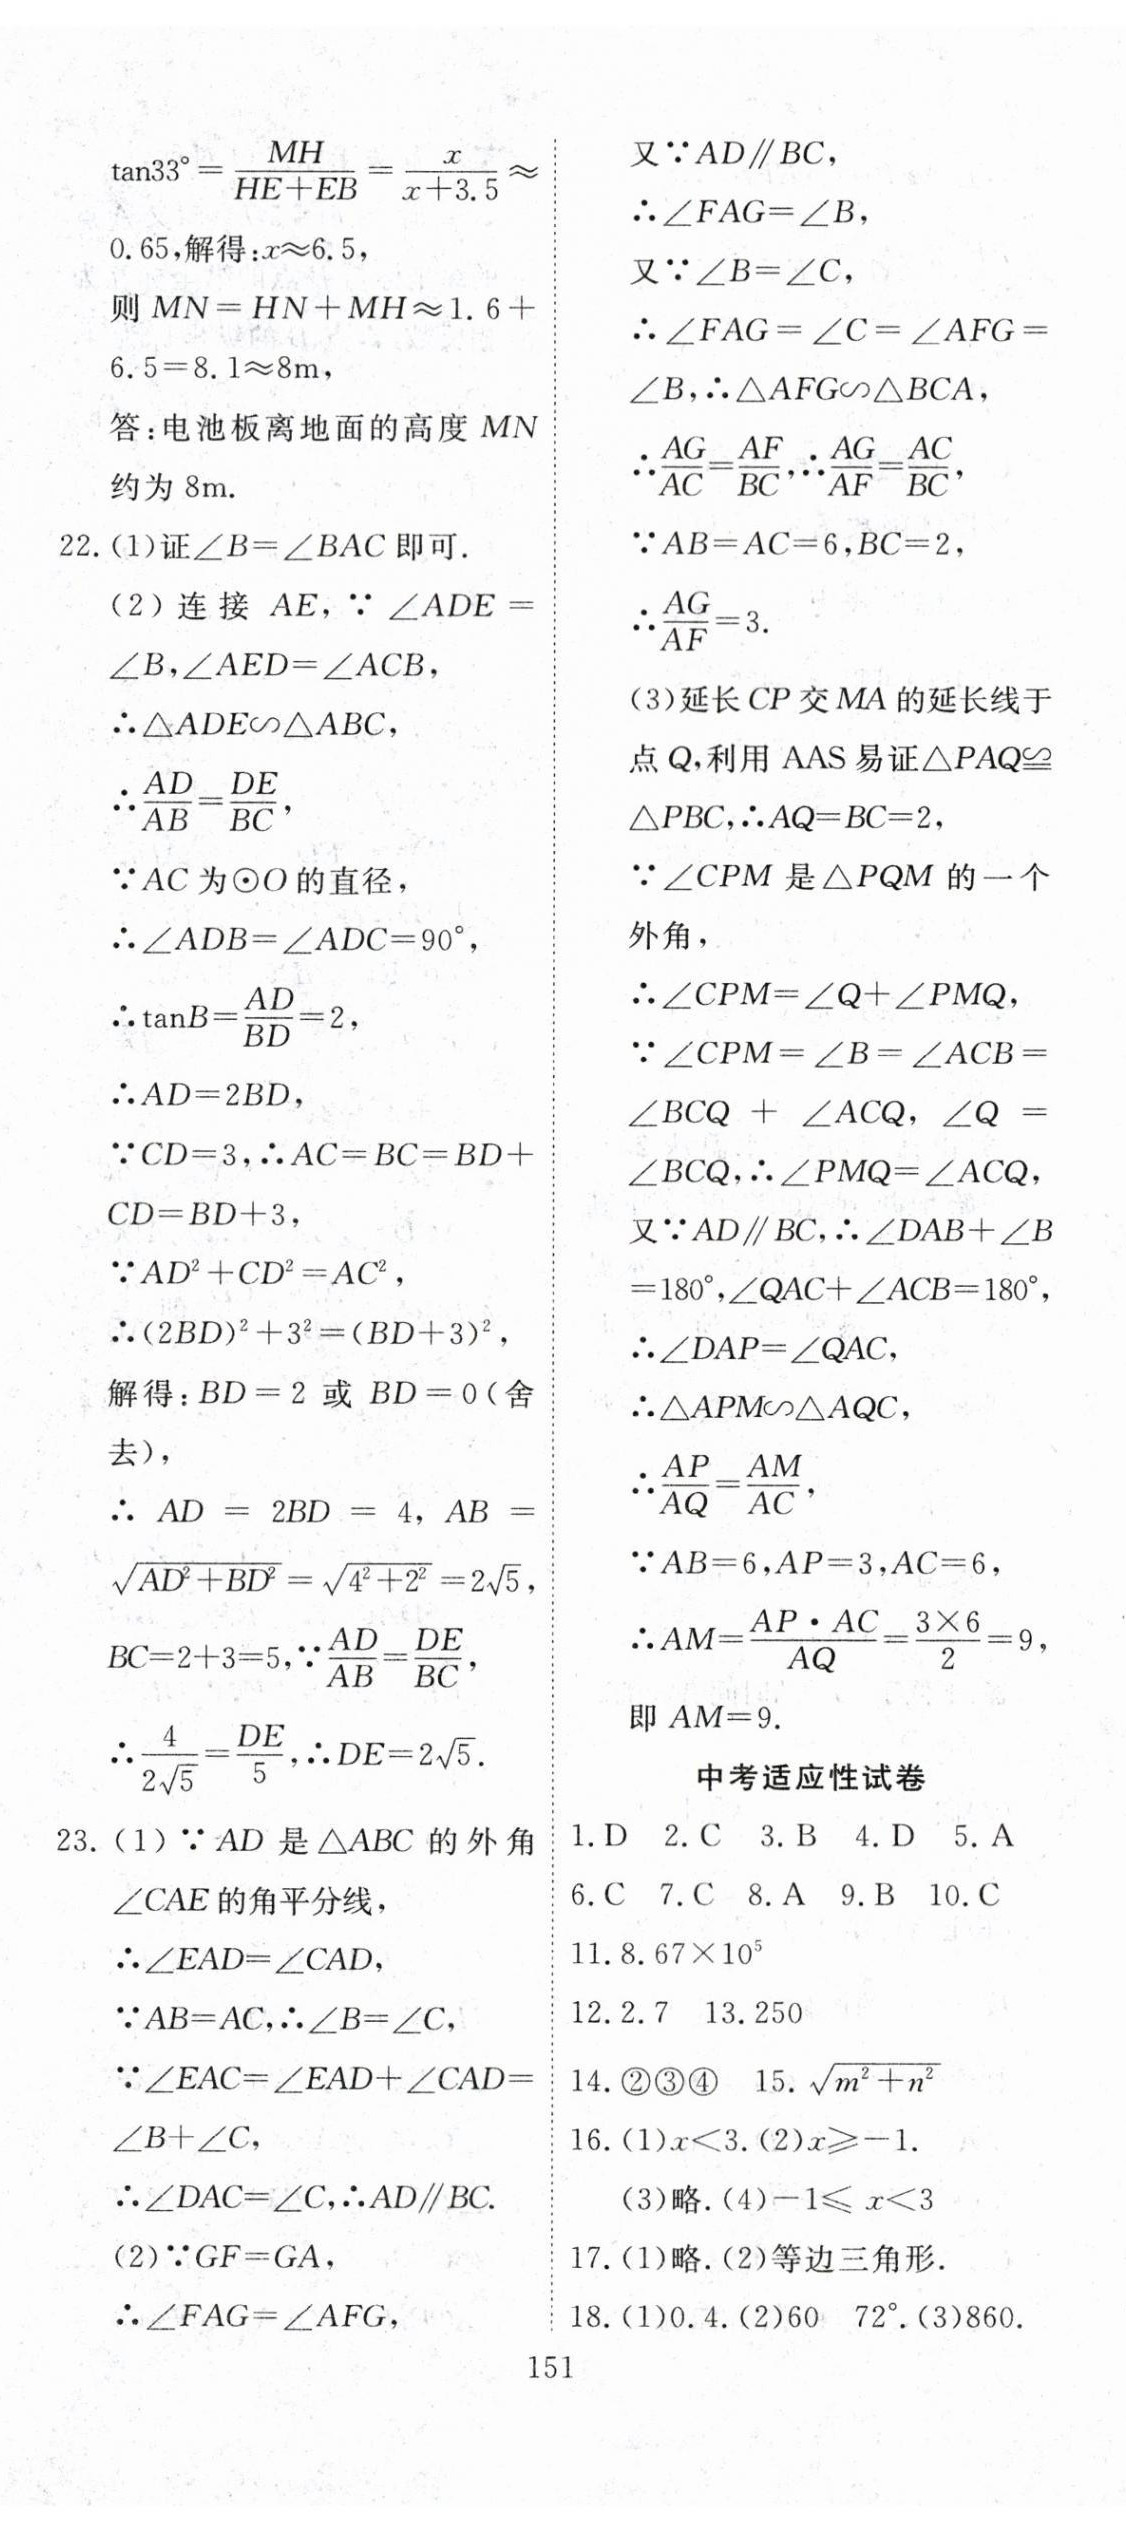 tan33°=MH/(HE+EB)=x/(x+3.5)≈
0.65,解得:x≈6.5,
则 MN=HN+MH≈1.6+
6.5=8.1≈8m,
答:电池板离地面的高度 MN
约为 8m.
22.(1)证∠B=∠BAC 即可.
(2)连接 AE,∵∠ADE=
∠B,∠AED=∠ACB,
∴△ADE∽△ABC,
∴AD/AB=DE/BC,
∵AC 为⊙O 的直径,
∴∠ADB=∠ADC=90°,
∴tanB=AD/BD=2,
∴AD=2BD,
∵CD=3,∴AC=BC=BD+
CD=BD+3,
∵AD²+CD²=AC²,
∴(2BD)²+3²=(BD+3)²,
解得:BD=2 或 BD=0(舍
去),
∴ AD = 2BD = 4, AB =
√(AD²+BD²)=√(4²+2²)=2√5,
BC=2+3=5,∵AD/AB=DE/BC,
∴4/(2√5)=DE/5,∴DE=2√5.
23.(1)∵AD 是△ABC 的外角
∠CAE 的角平分线,
∴∠EAD=∠CAD,
∵AB=AC,∴∠B=∠C,
∵∠EAC=∠EAD+∠CAD=
∠B+∠C,
∴∠DAC=∠C,∴AD∥BC.
(2)∵GF=GA,
∴∠FAG=∠AFG,
又∵AD∥BC,
∴∠FAG=∠B,
又∵∠B=∠C,
∴∠FAG=∠C=∠AFG=
∠B,∴△AFG∽△BCA,
∴AG/AC=AF/BC,∴AG/AF=AC/BC,
∵AB=AC=6,BC=2,
∴AG/AF=3.
(3)延长 CP 交 MA 的延长线于
点 Q,利用 AAS 易证△PAQ≌
△PBC,∴AQ=BC=2,
∵∠CPM 是△PQM 的一个
外角,
∴∠CPM=∠Q+∠PMQ,
∵∠CPM=∠B=∠ACB=
∠BCQ + ∠ACQ, ∠Q =
∠BCQ,∴∠PMQ=∠ACQ,
又∵AD∥BC,∴∠DAB+∠B
=180°,∠QAC+∠ACB=180°,
∴∠DAP=∠QAC,
∴△APM∽△AQC,
∴AP/AQ=AM/AC,
∵AB=6,AP=3,AC=6,
∴AM=AP·AC/AQ=3×6/2=9,
即 AM=9.
中考适应性试卷
1.D 2.C 3.B 4.D 5.A
6.C 7.C 8.A 9.B 10.C
11.8.67×10⁵
12.2.7 13.250
14.②③④ 15.√(m²+n²)
16.(1)x<3.(2)x≥-1.
(3)略.(4)-1≤x<3
17.(1)略.(2)等边三角形.
18.(1)0.4.(2)60 72°.(3)860.
151